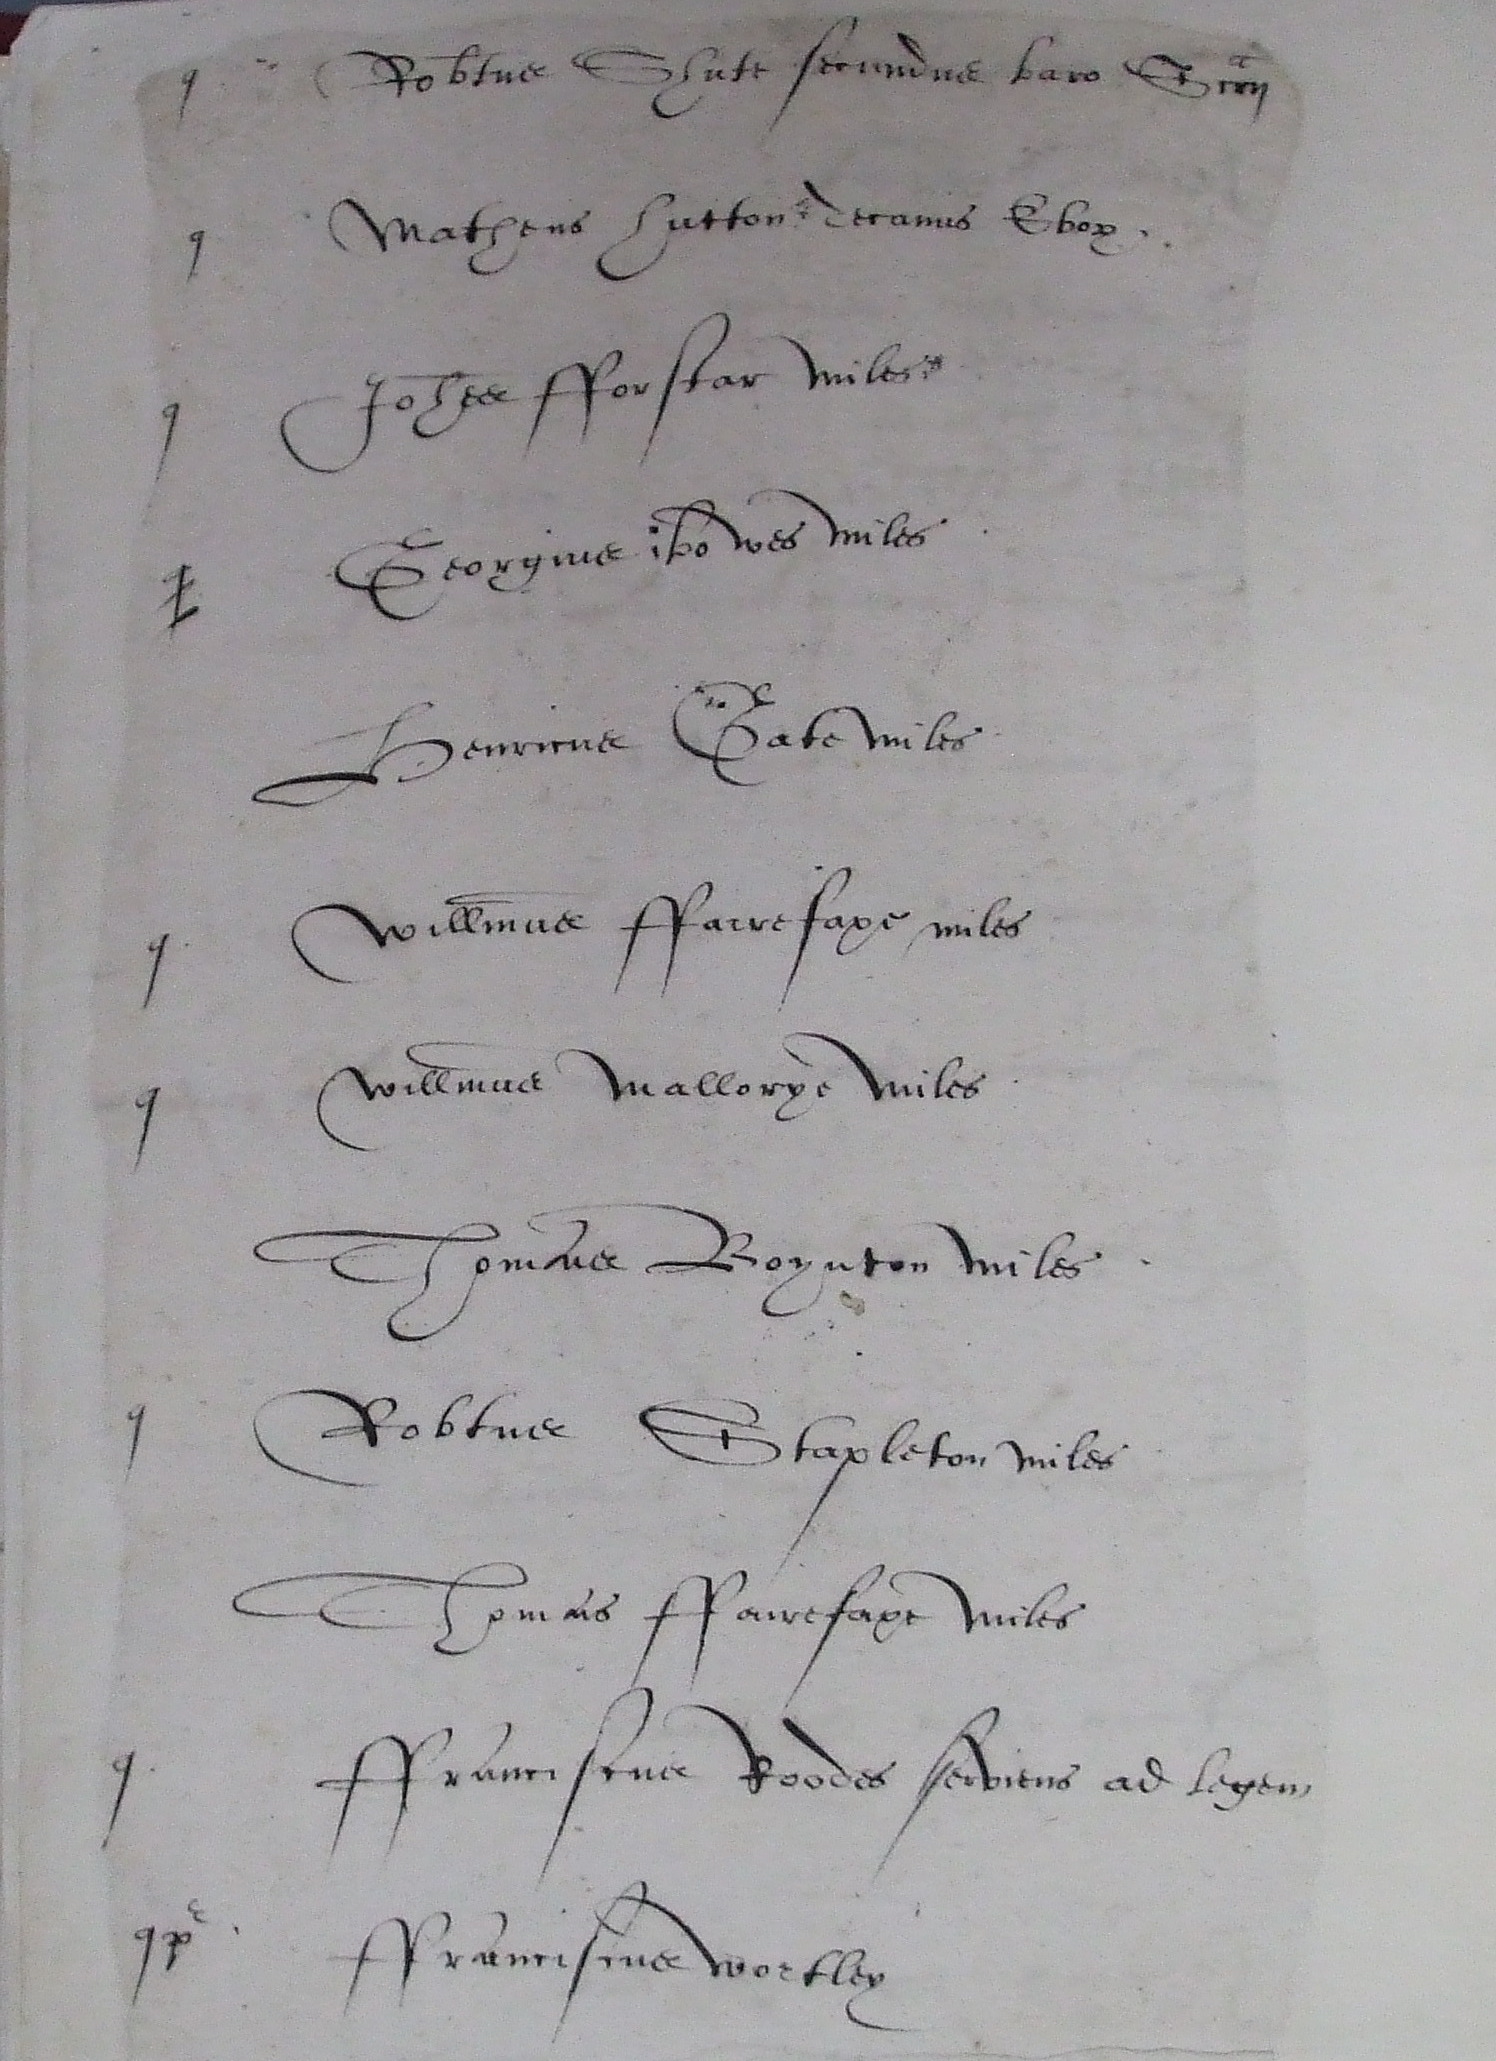 q Robtus Shute secundus baro Sccrij
q Matheus Hutton decanus Ebor.
q Johes fforstar miles
Georgius Bowes miles
Henricus Gate miles
q. Willmus ffairefaxe miles
q Willmus Mallorye miles
Thomas Boynton miles
q Robtus Stapleton miles
Thomas ffairefaxe miles
q. ffranciscus Roodes serviens ad legem
qp ffranciscus Wortley